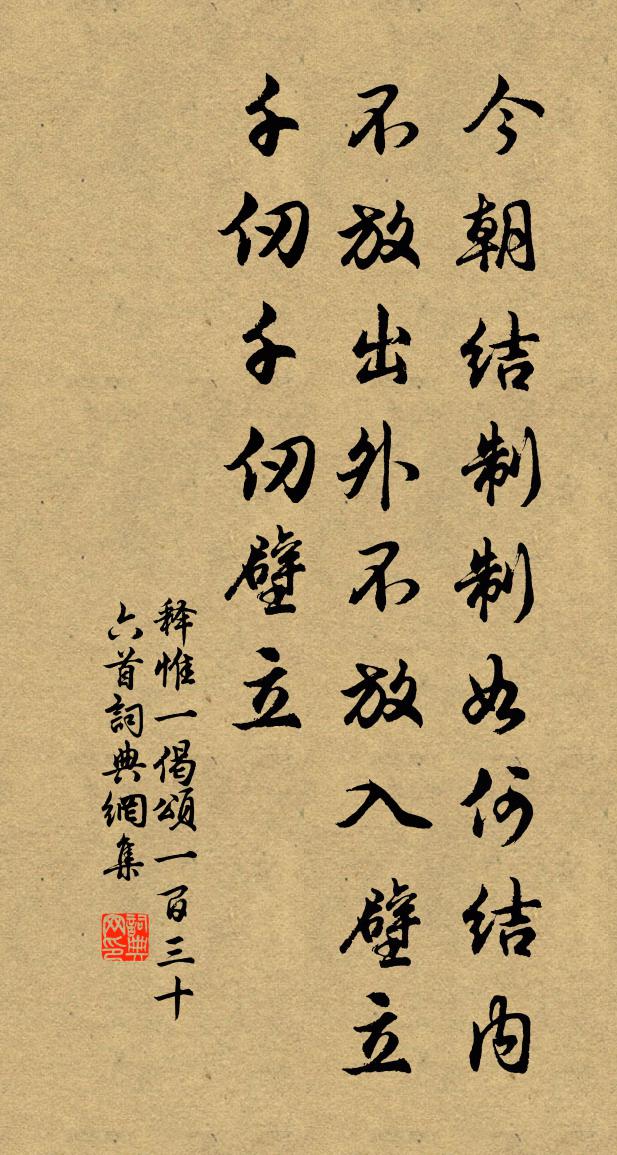 今朝结制制如何结内
不放出外不放入壁立
千仞千仞壁立
释惟一偈頌一百三十
六首詞典網集
詞典
网印